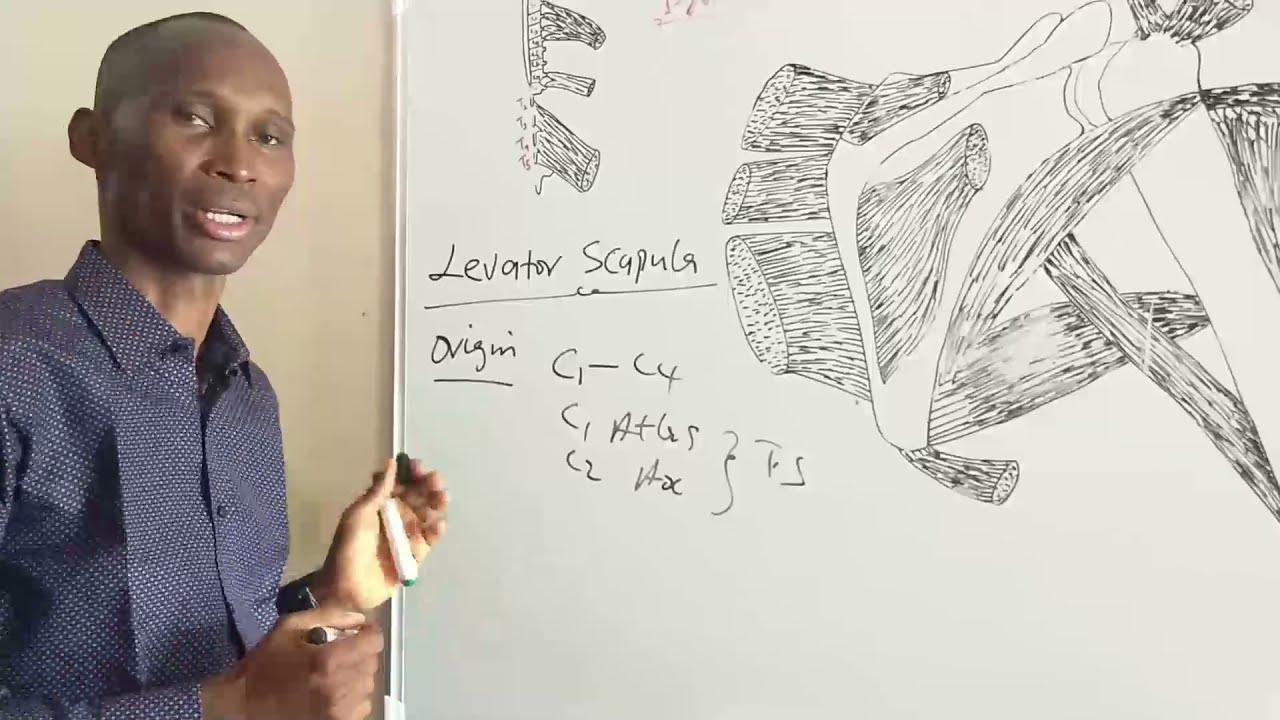 T2
T3
T4
T5
Levator Scapula
Origin
C1 – C4
C1 Atlas
C2 Ax } T.S